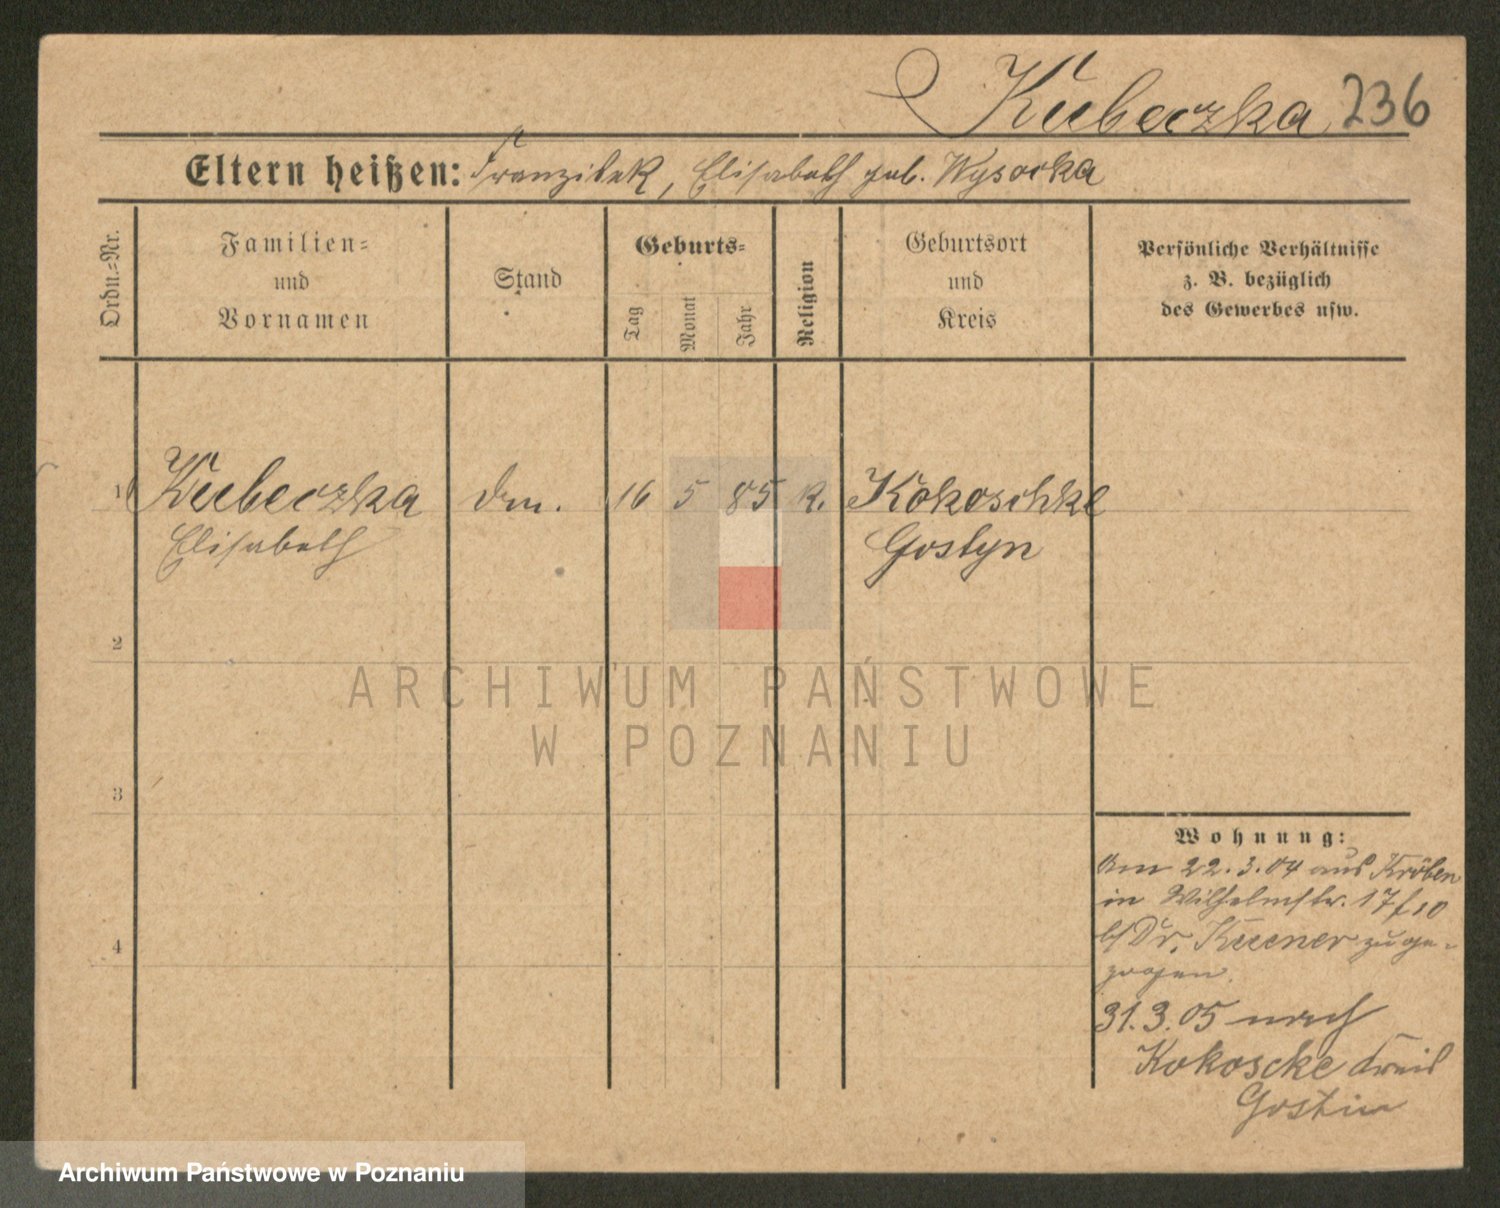 Kubeczka 236
Eltern heißen: Franzisek, Elisabeth geb. Wysocka
Ordn.-Nr.
Familien-
und
Vornamen
Stand
Geburts-
Tag
Monat
Jahr
Religion
Geburtsort
und
Kreis
Persönliche Verhältnisse
z. B. bezüglich
des Gewerbes usw.
1 Kubeczka 16 5 85 k. Kokoschke
Elisabeth Gostyn
2
3
4
Wohnung:
Am 22.3.04 aus Kröben
in Wilhelmstr. 17
b/ Dr. zuge-
zogen.
31.3.05 nach
Kokoscke Kreis
Gostin
ARCHIWUM PAŃSTWOWE
W POZNANIU
Archiwum Państwowe w Poznaniu